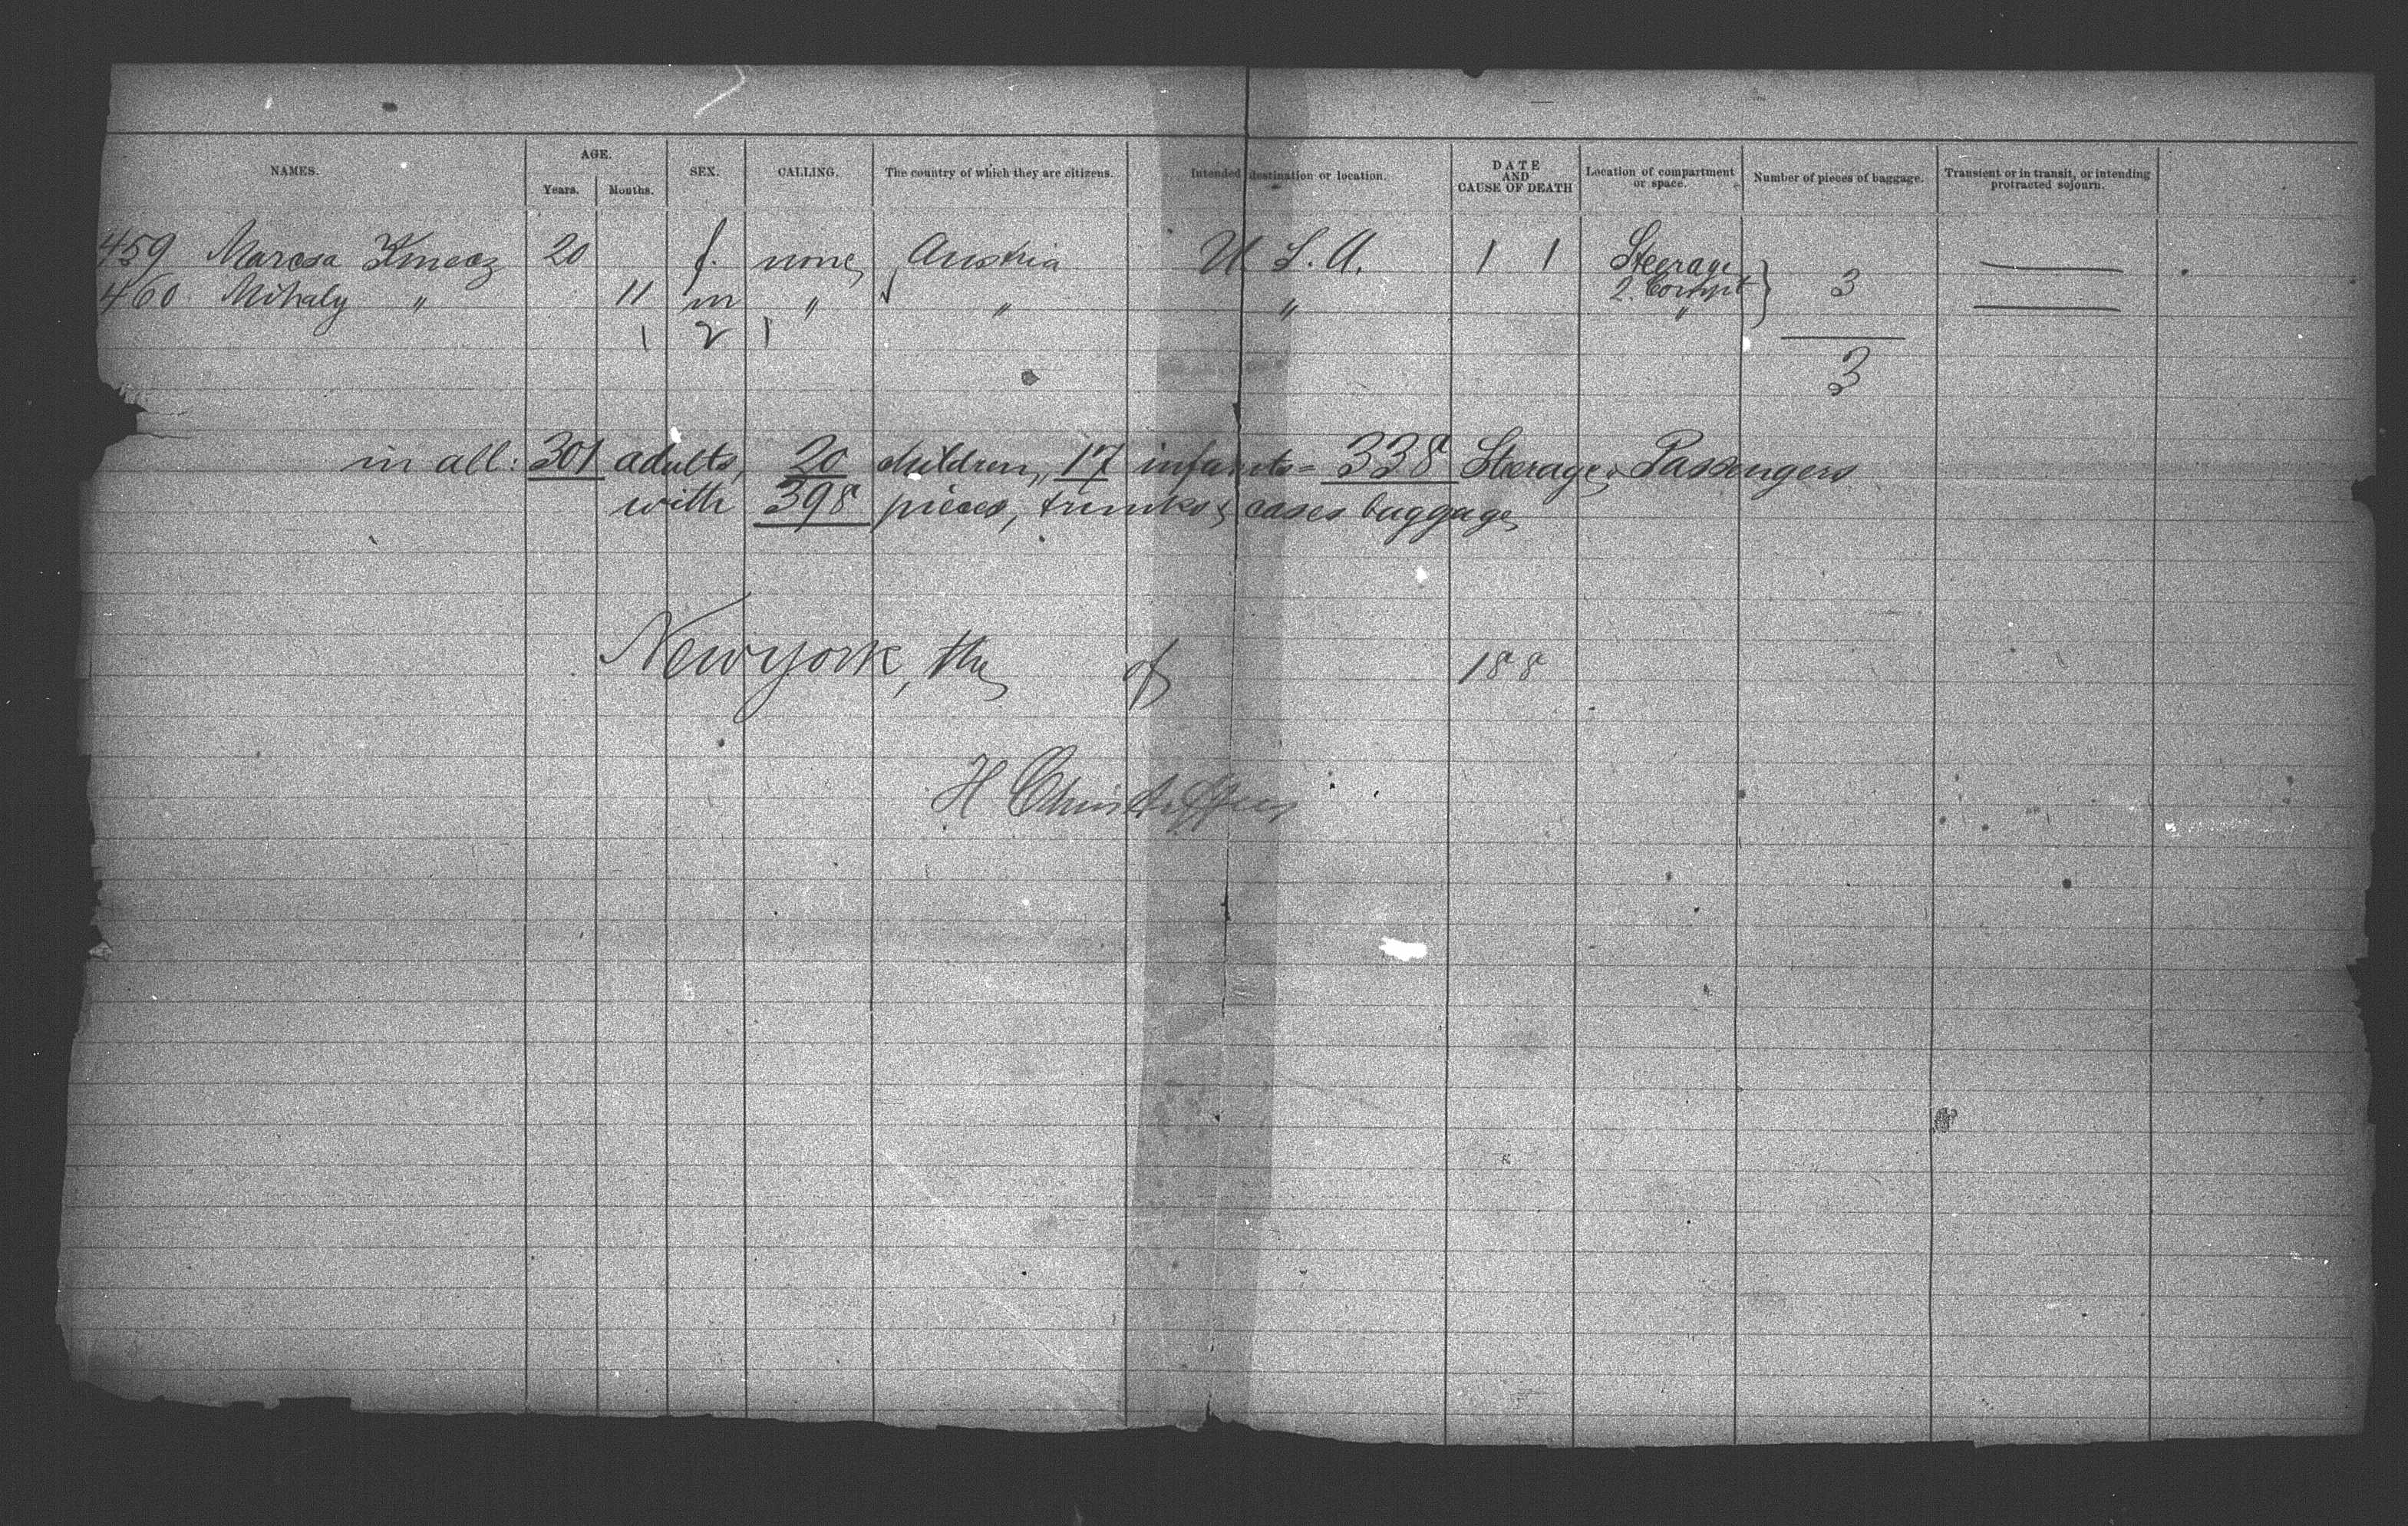 NAMES. AGE. SEX. CALLING. The country of which they are citizens. Intended destination or location. DATE AND CAUSE OF DEATH Location of compartment or space. Number of pieces of baggage. Transient or in transit, or intending protracted sojourn.
Years. Months.
459 Marcsa Kmecz 20 f. none Austria U. S. A. 1 1 Steerage 2. Compt } 3
460 Mihaly " 11 m " " " "
1 2 1
3
in all: 301 adults, 20 children, 17 infants = 338 Steerage Passengers
with 398 pieces, trunks & cases baggage
New York, the of 188
H Christoffers